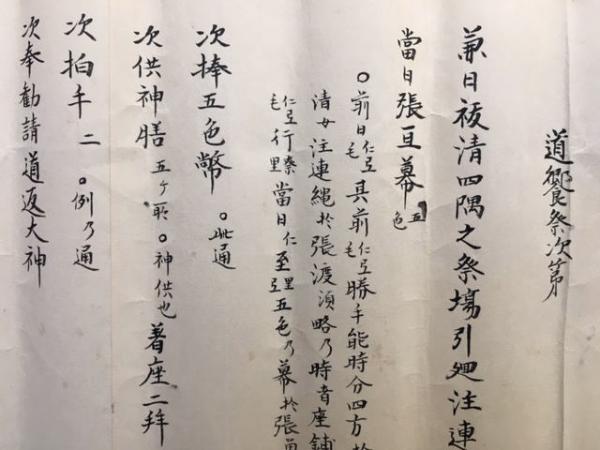 道饗祭次第
兼日祓清四隅之祭場引廻注連
當日張亘幕五色
○前日仁弖毛其前仁弖毛勝手能時分四方於
清女注連縄於張渡須略乃時者座鋪
仁弖毛行祭里當日仁至里弖五色乃幕於張
次捧五色幣 ○此通
次供神膳 五ケ所 ○神供也 着座二拜
次拍手 二 ○例乃通
次奉勧請道返大神